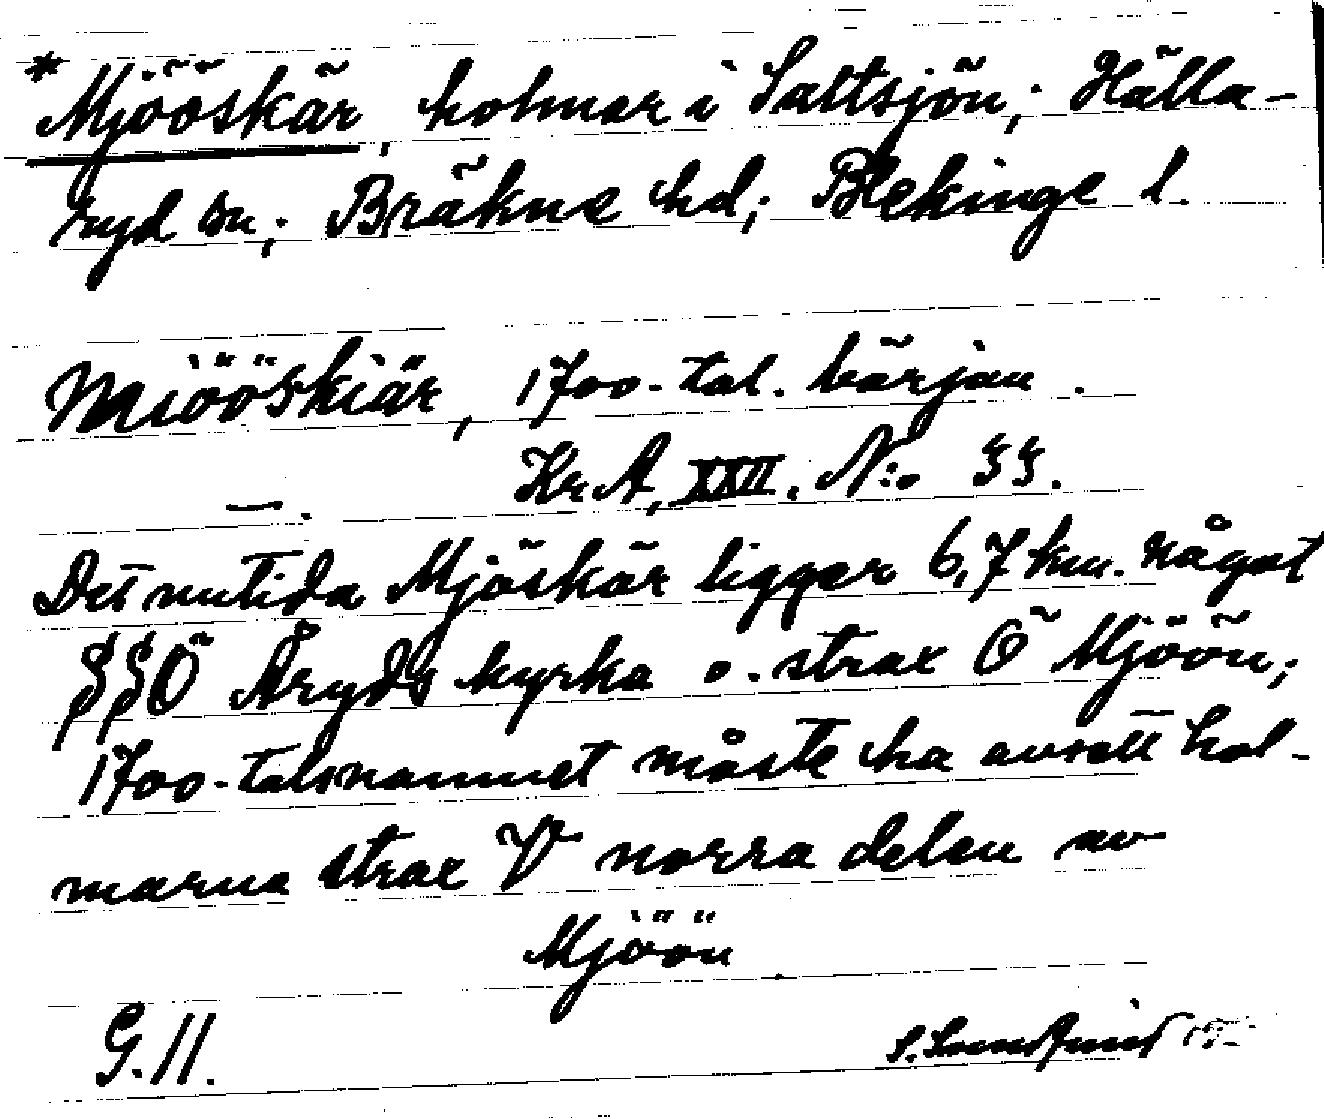 *Mjööskär, holmar i Saltsjön; Hälla-
ryd sn; Bräkne hd; Blekinge l.
Miööskiär, 1700-tal. början.
—. Kr.A, XXII. N:o 33.
Det nutida Mjöskär ligger 6,7 km. något
SSÖ Åryds kyrka o. strax Ö Mjöön;
1700-talsnamnet måste ha avsett hol-
marna strax V norra delen av
Mjöön
G.11.